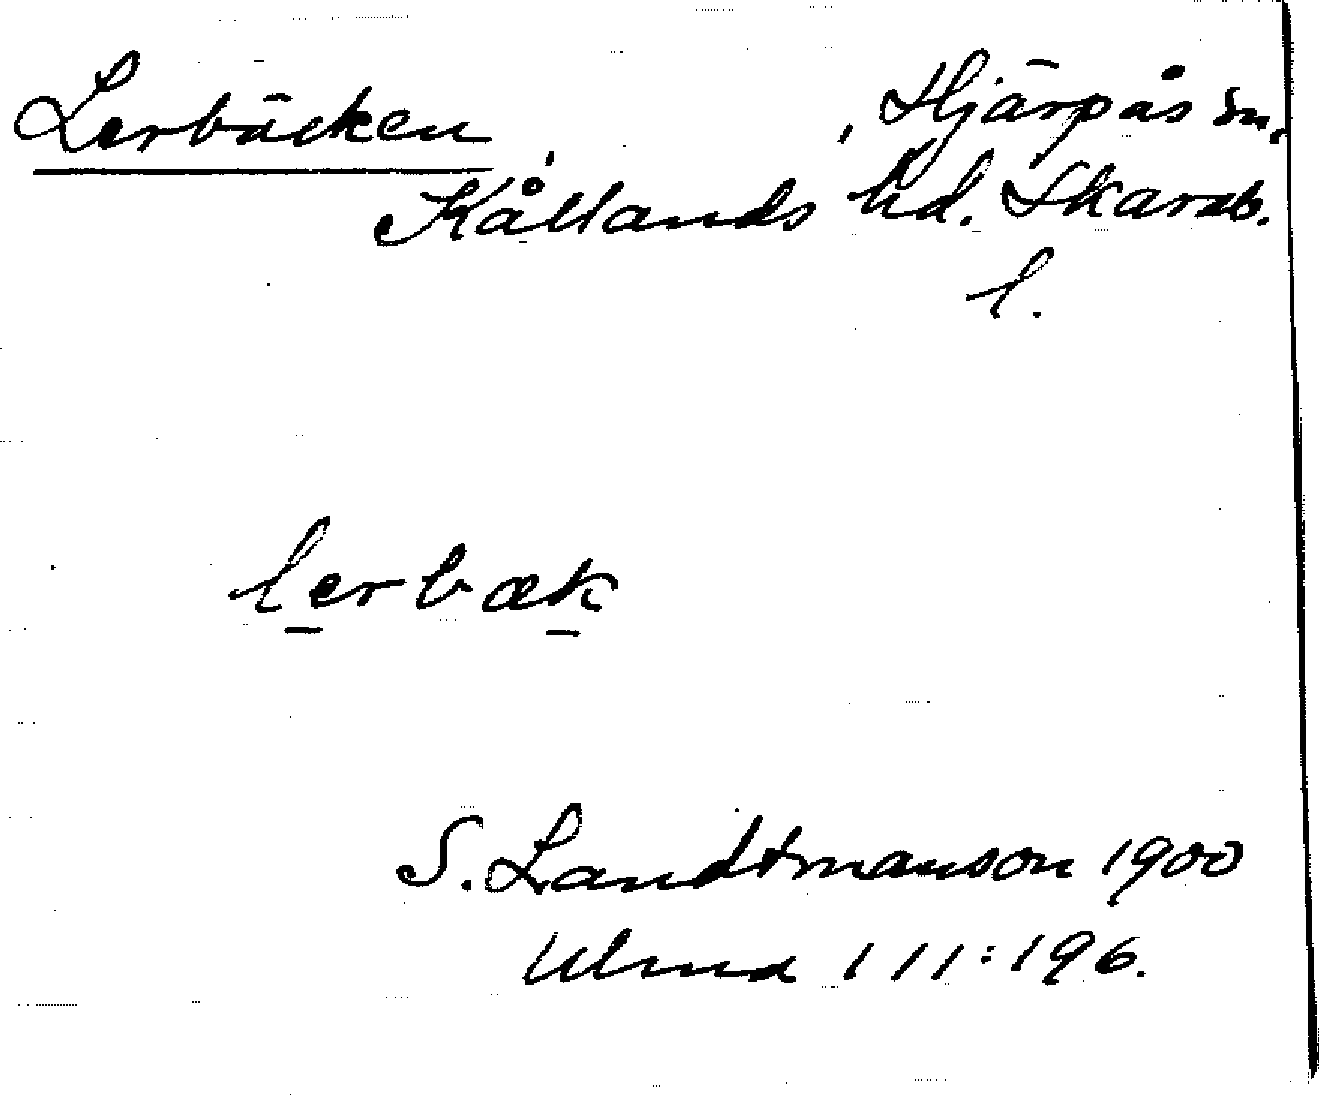 Lerbäcken, , Hjärpås sn.
Kållands hd. Skarab.
l.
lerbæk
S. Landtmanson 1900
Ulma 111:196.